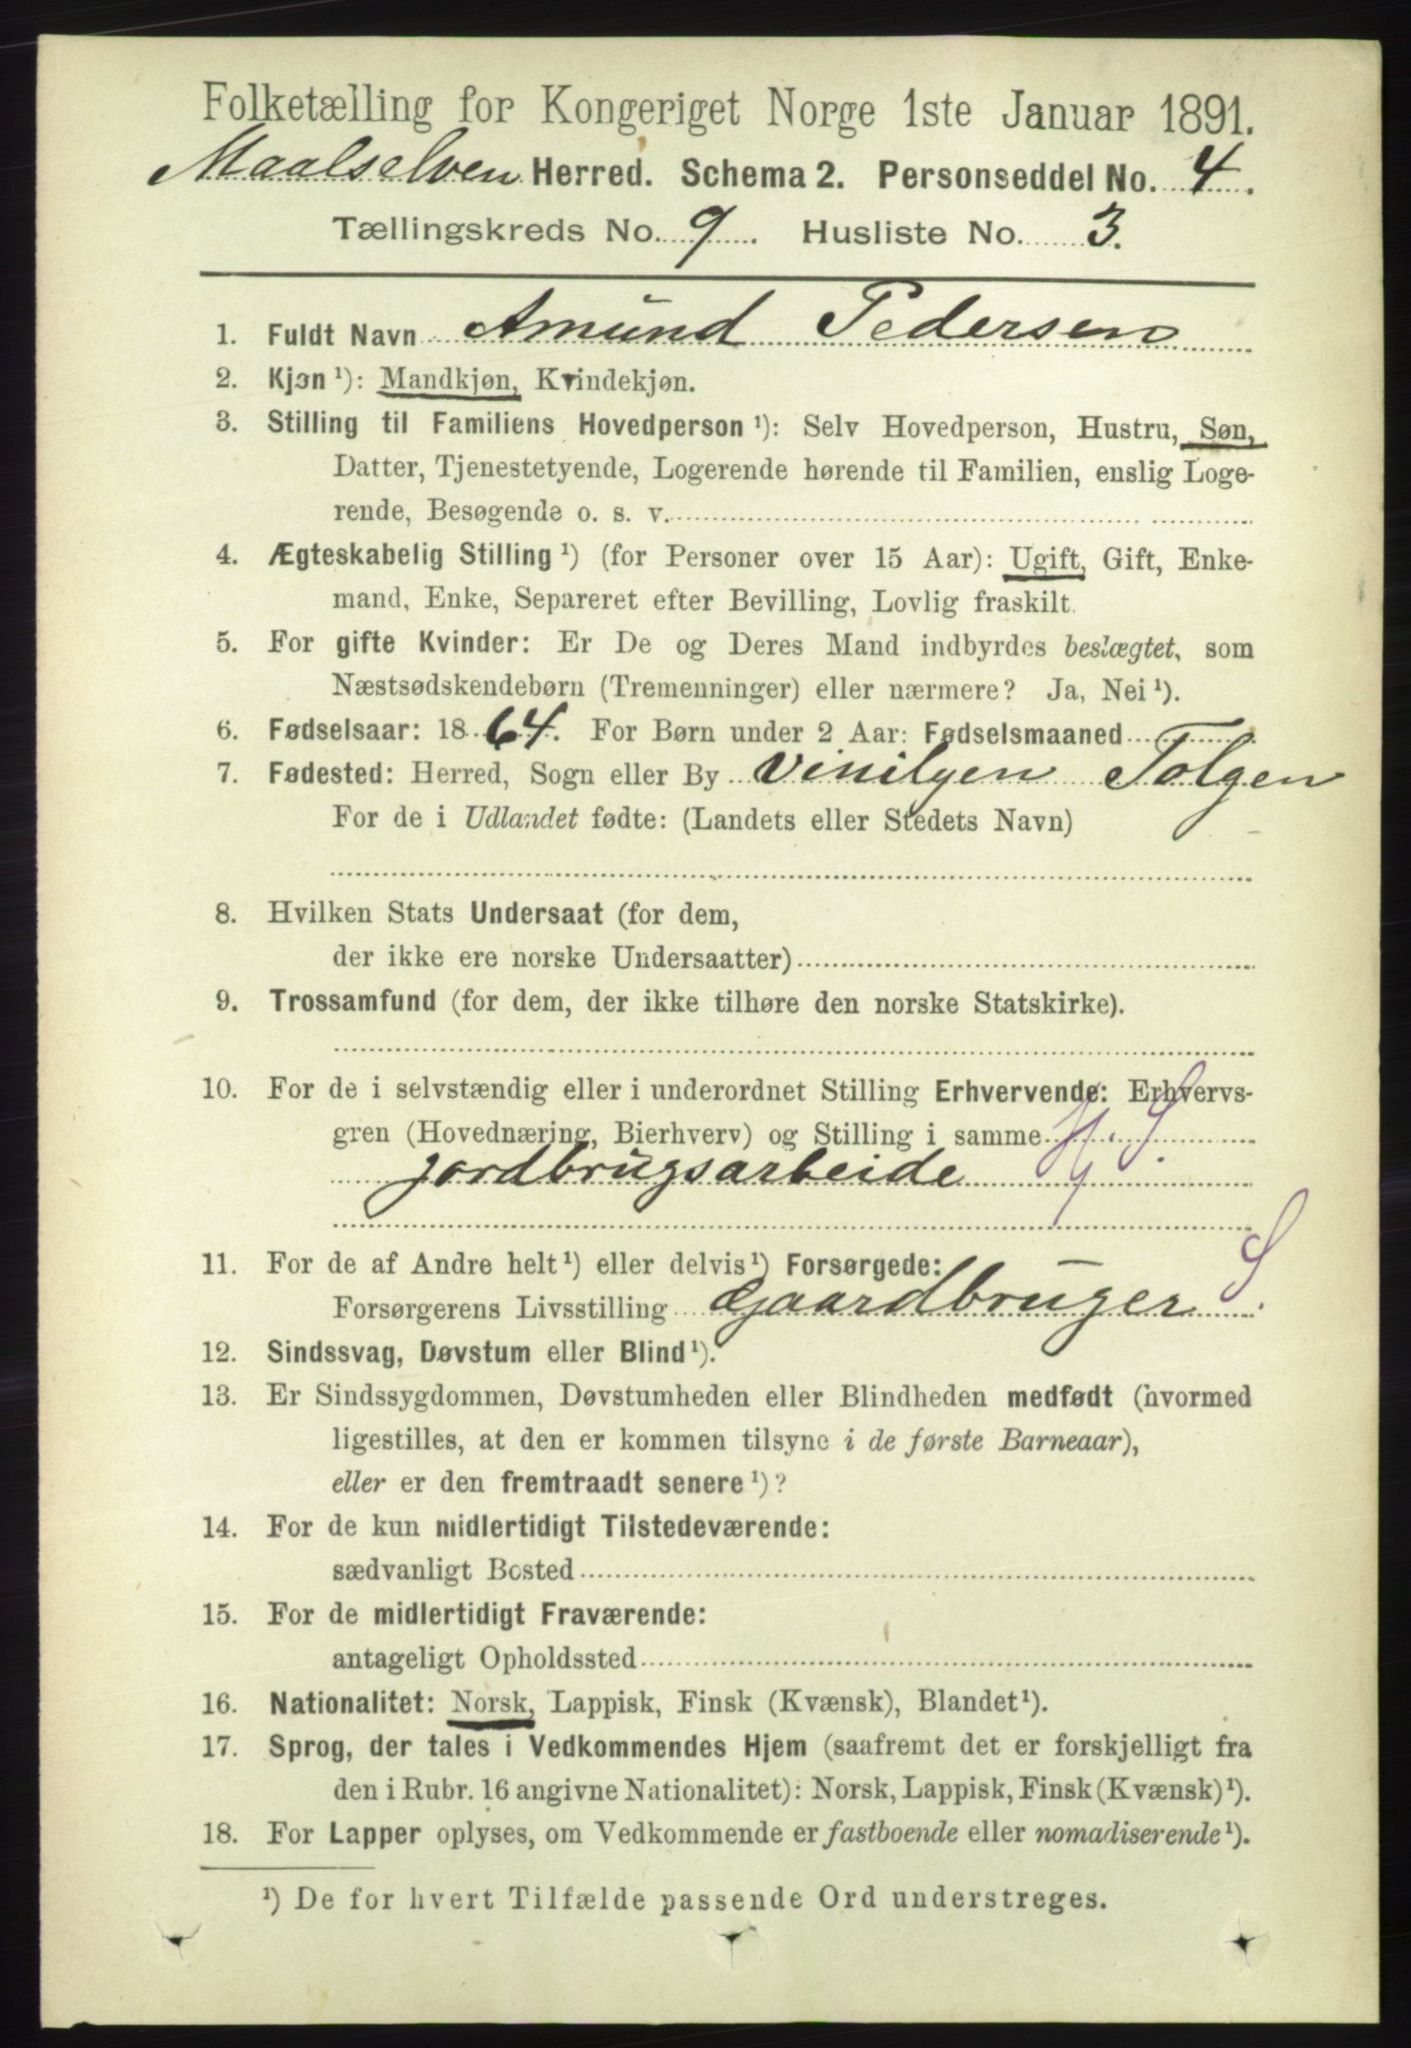 Folketælling for Kongeriget Norge 1ste Januar 1891.
Maalselven Herred. Schema 2. Personseddel No. 4.
Tællingskreds No. 9. Husliste No. 3.
1. Fuldt Navn Amund Pedersen
2. Kjøn ¹): Mandkjøn, Kvindekjøn.
3. Stilling til Familiens Hovedperson ¹): Selv Hovedperson, Hustru, Søn,
Datter, Tjenestetyende, Logerende hørende til Familien, enslig Loge-
rende, Besøgende o. s. v.
4. Ægteskabelig Stilling ¹) (for Personer over 15 Aar): Ugift, Gift, Enke-
mand, Enke, Separeret efter Bevilling, Lovlig fraskilt.
5. For gifte Kvinder: Er De og Deres Mand indbyrdes beslægtet, som
Næstsødskendebørn (Tremenninger) eller nærmere? Ja, Nei ¹).
6. Fødselsaar: 1864. For Børn under 2 Aar: Fødselsmaaned
7. Fødested: Herred, Sogn eller By Vinilyen Tolgen
For de i Udlandet fødte: (Landets eller Stedets Navn)
8. Hvilken Stats Undersaat (for dem,
der ikke ere norske Undersaatter)
9. Trossamfund (for dem, der ikke tilhøre den norske Statskirke).
10. For de i selvstændig eller i underordnet Stilling Erhvervende: Erhvervs-
gren (Hovednæring, Bierhverv) og Stilling i samme
jordbrugsarbeide
11. For de af Andre helt ¹) eller delvis ¹) Forsørgede:
Forsørgerens Livsstilling Gaardbruger S.
12. Sindssvag, Døvstum eller Blind ¹).
13. Er Sindssygdommen, Døvstumheden eller Blindheden medfødt (hvormed
ligestilles, at den er kommen tilsyne i de første Barneaar),
eller er den fremtraadt senere ¹)?
14. For de kun midlertidigt Tilstedeværende:
sædvanligt Bosted
15. For de midlertidigt Fraværende:
antageligt Opholdssted
16. Nationalitet: Norsk, Lappisk, Finsk (Kvænsk), Blandet ¹).
17. Sprog, der tales i Vedkommendes Hjem (saafremt det er forskjelligt fra
den i Rubr. 16 angivne Nationalitet): Norsk, Lappisk, Finsk (Kvænsk) ¹).
18. For Lapper oplyses, om Vedkommende er fastboende eller nomadiserende ¹).
¹) De for hvert Tilfælde passende Ord understreges.